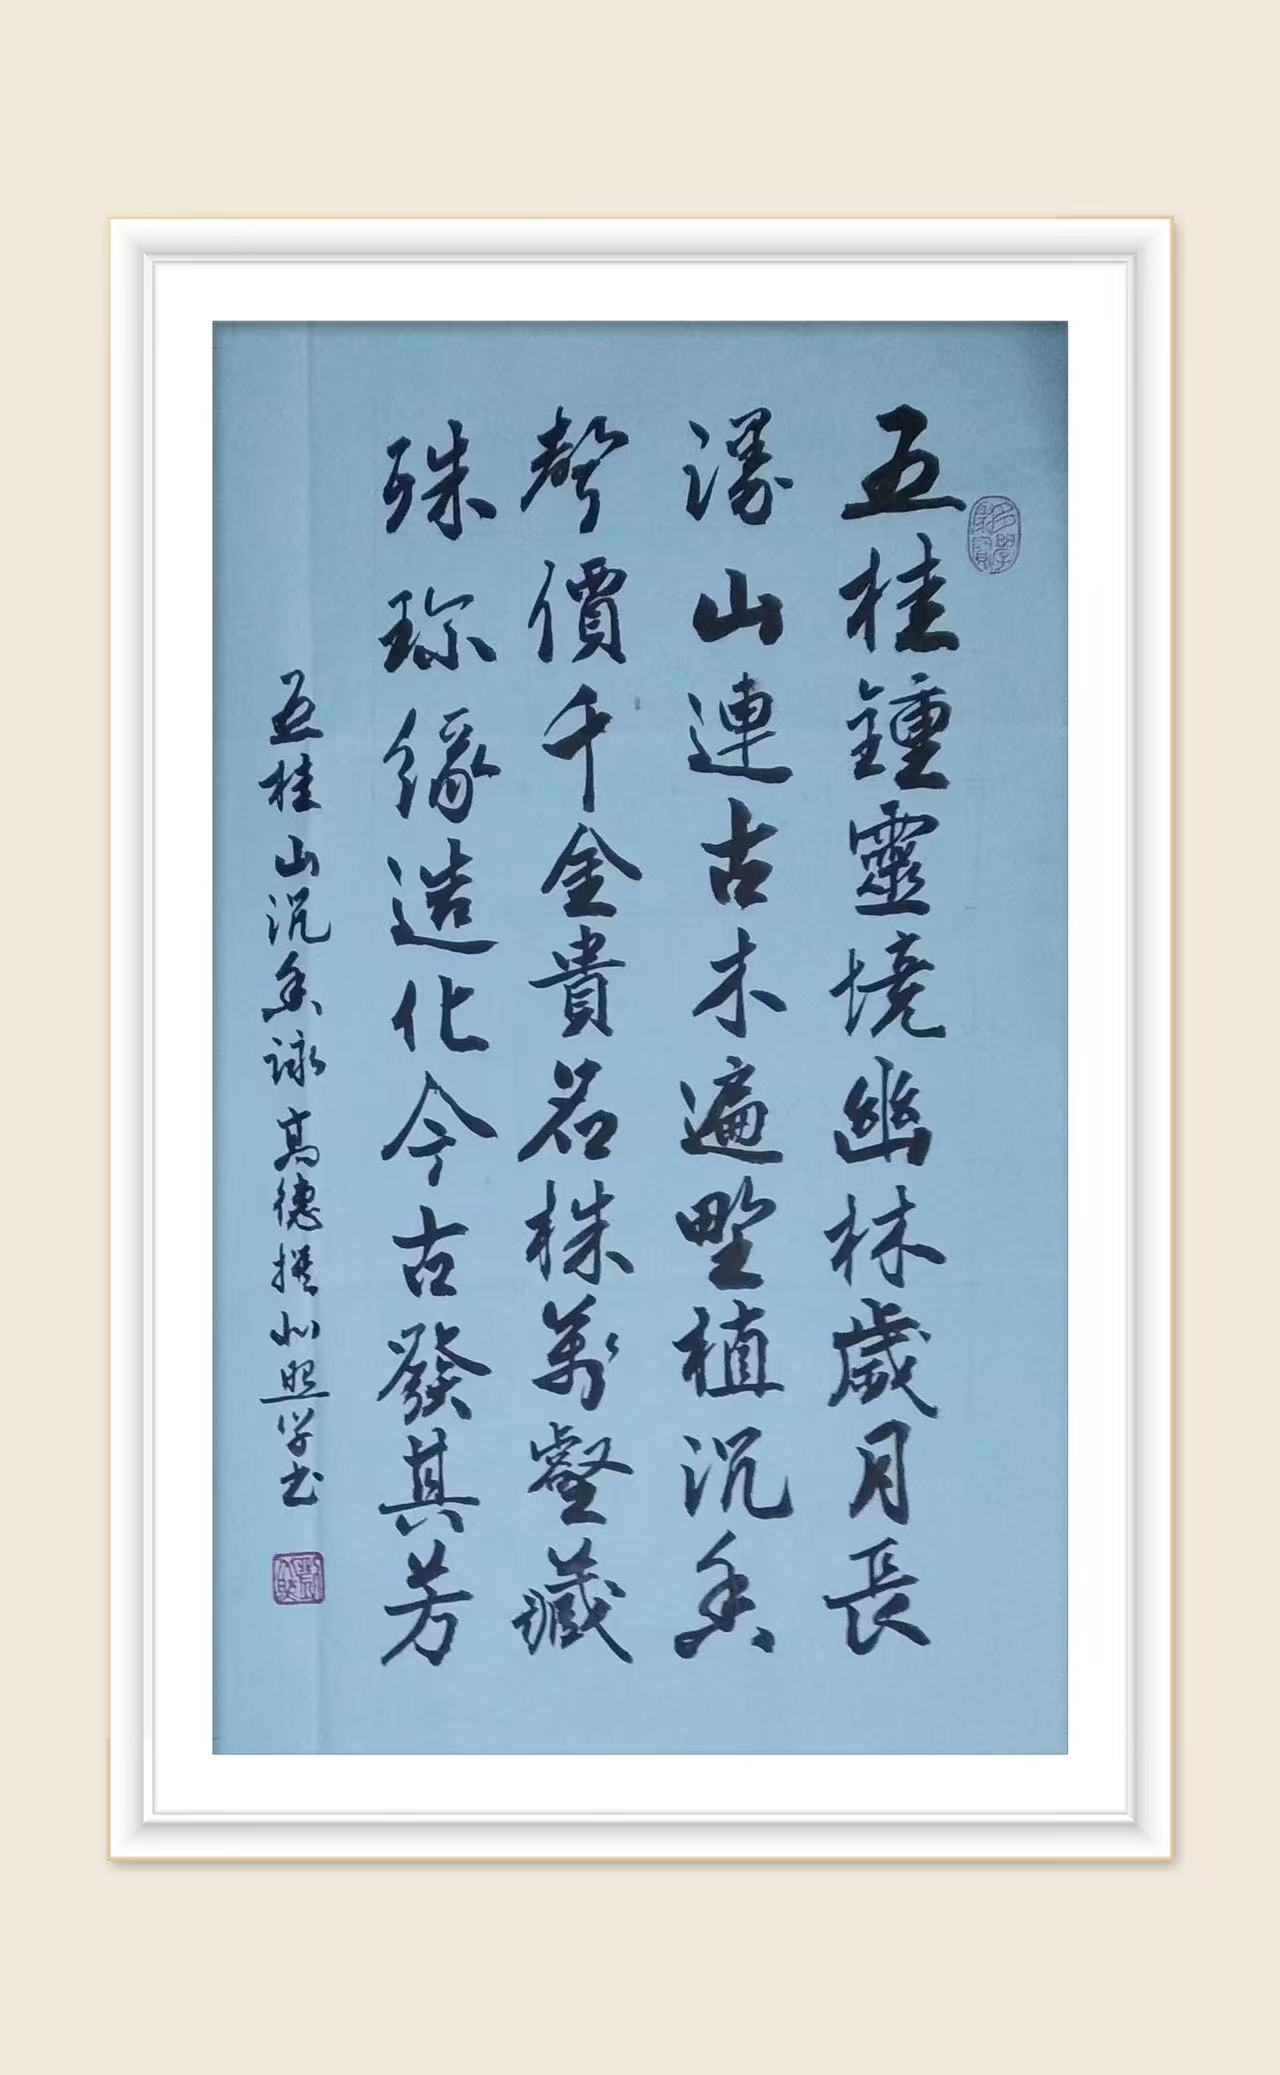 五桂鍾靈境幽林歲月長
漫山連古木遍野植沉香
聲價千金貴名株萬壑藏
殊珍緣造化今古發其芳
五桂山沉香詠高德撰 照学书